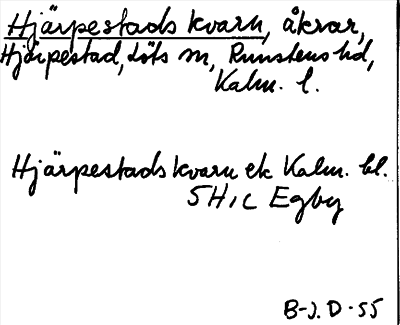 Hjärpestads kvarn, åkrar,
Hjärpestad, Löts sn, Runstens hd,
Kalm. l.
Hjärpestads kvarn ek Kalm. bl.
5H1c Egby
B-J.D-55